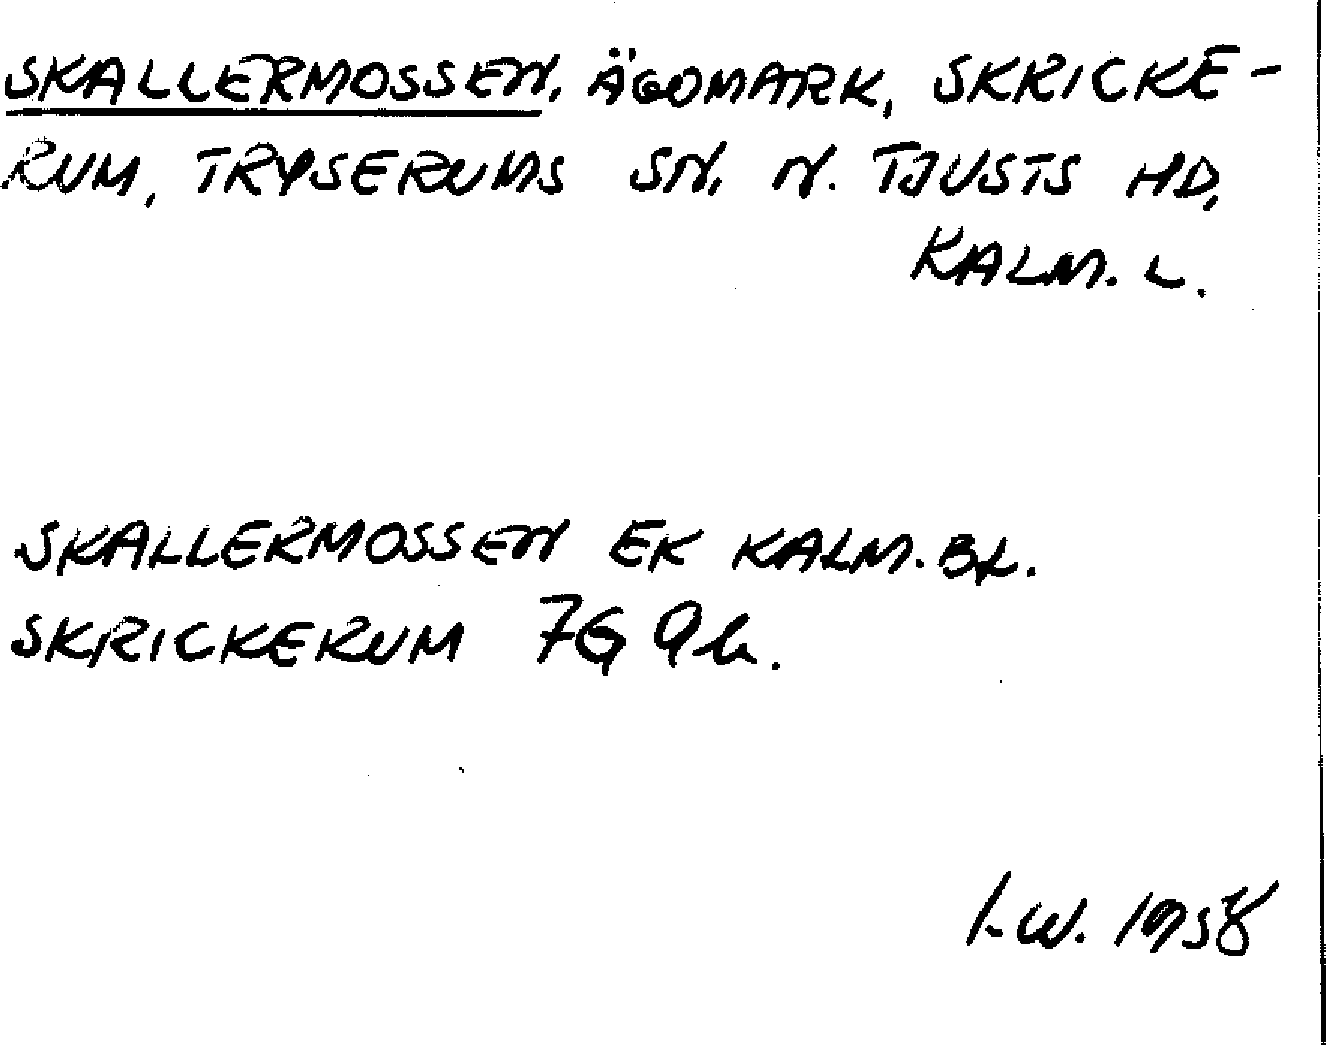 SKALLERMOSSEN, ÄGOMARK, SKRICKE-
RUM, TRYSERUMS SN, N. TJUSTS HD,
KALM. L.
SKALLERMOSSEN EK KALM. BL.
SKRICKERUM 7G 9h.
I.W. 1958